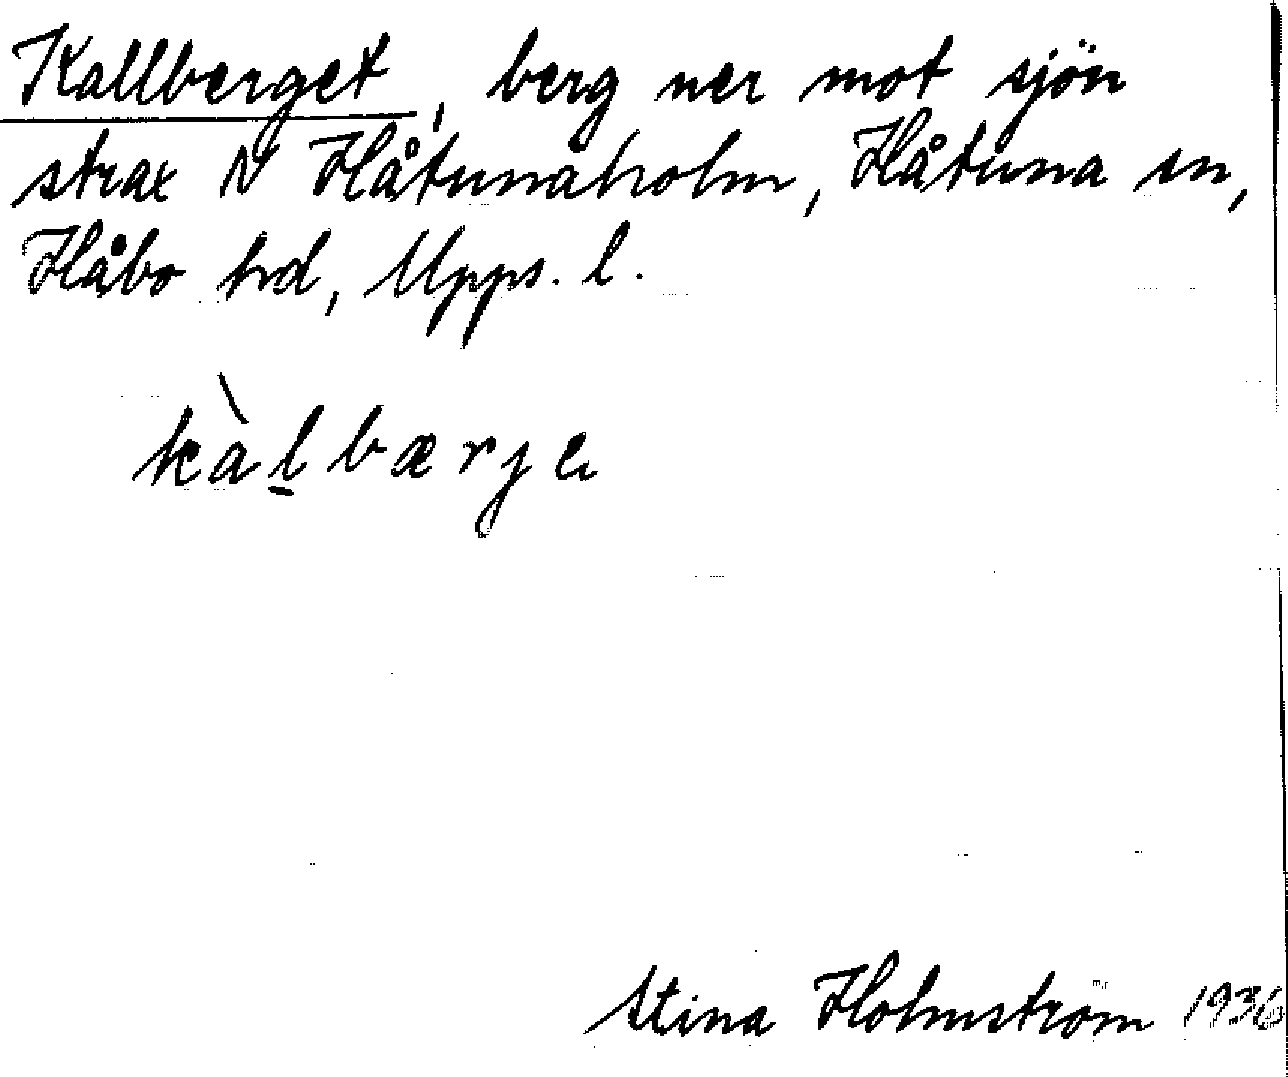 Kallberget, berg ner mot sjön
strax N Håtunaholm, Håtuna sn,
Håbo hd, Upps. l.
kàl̲bærje
Stina Holmström 1936